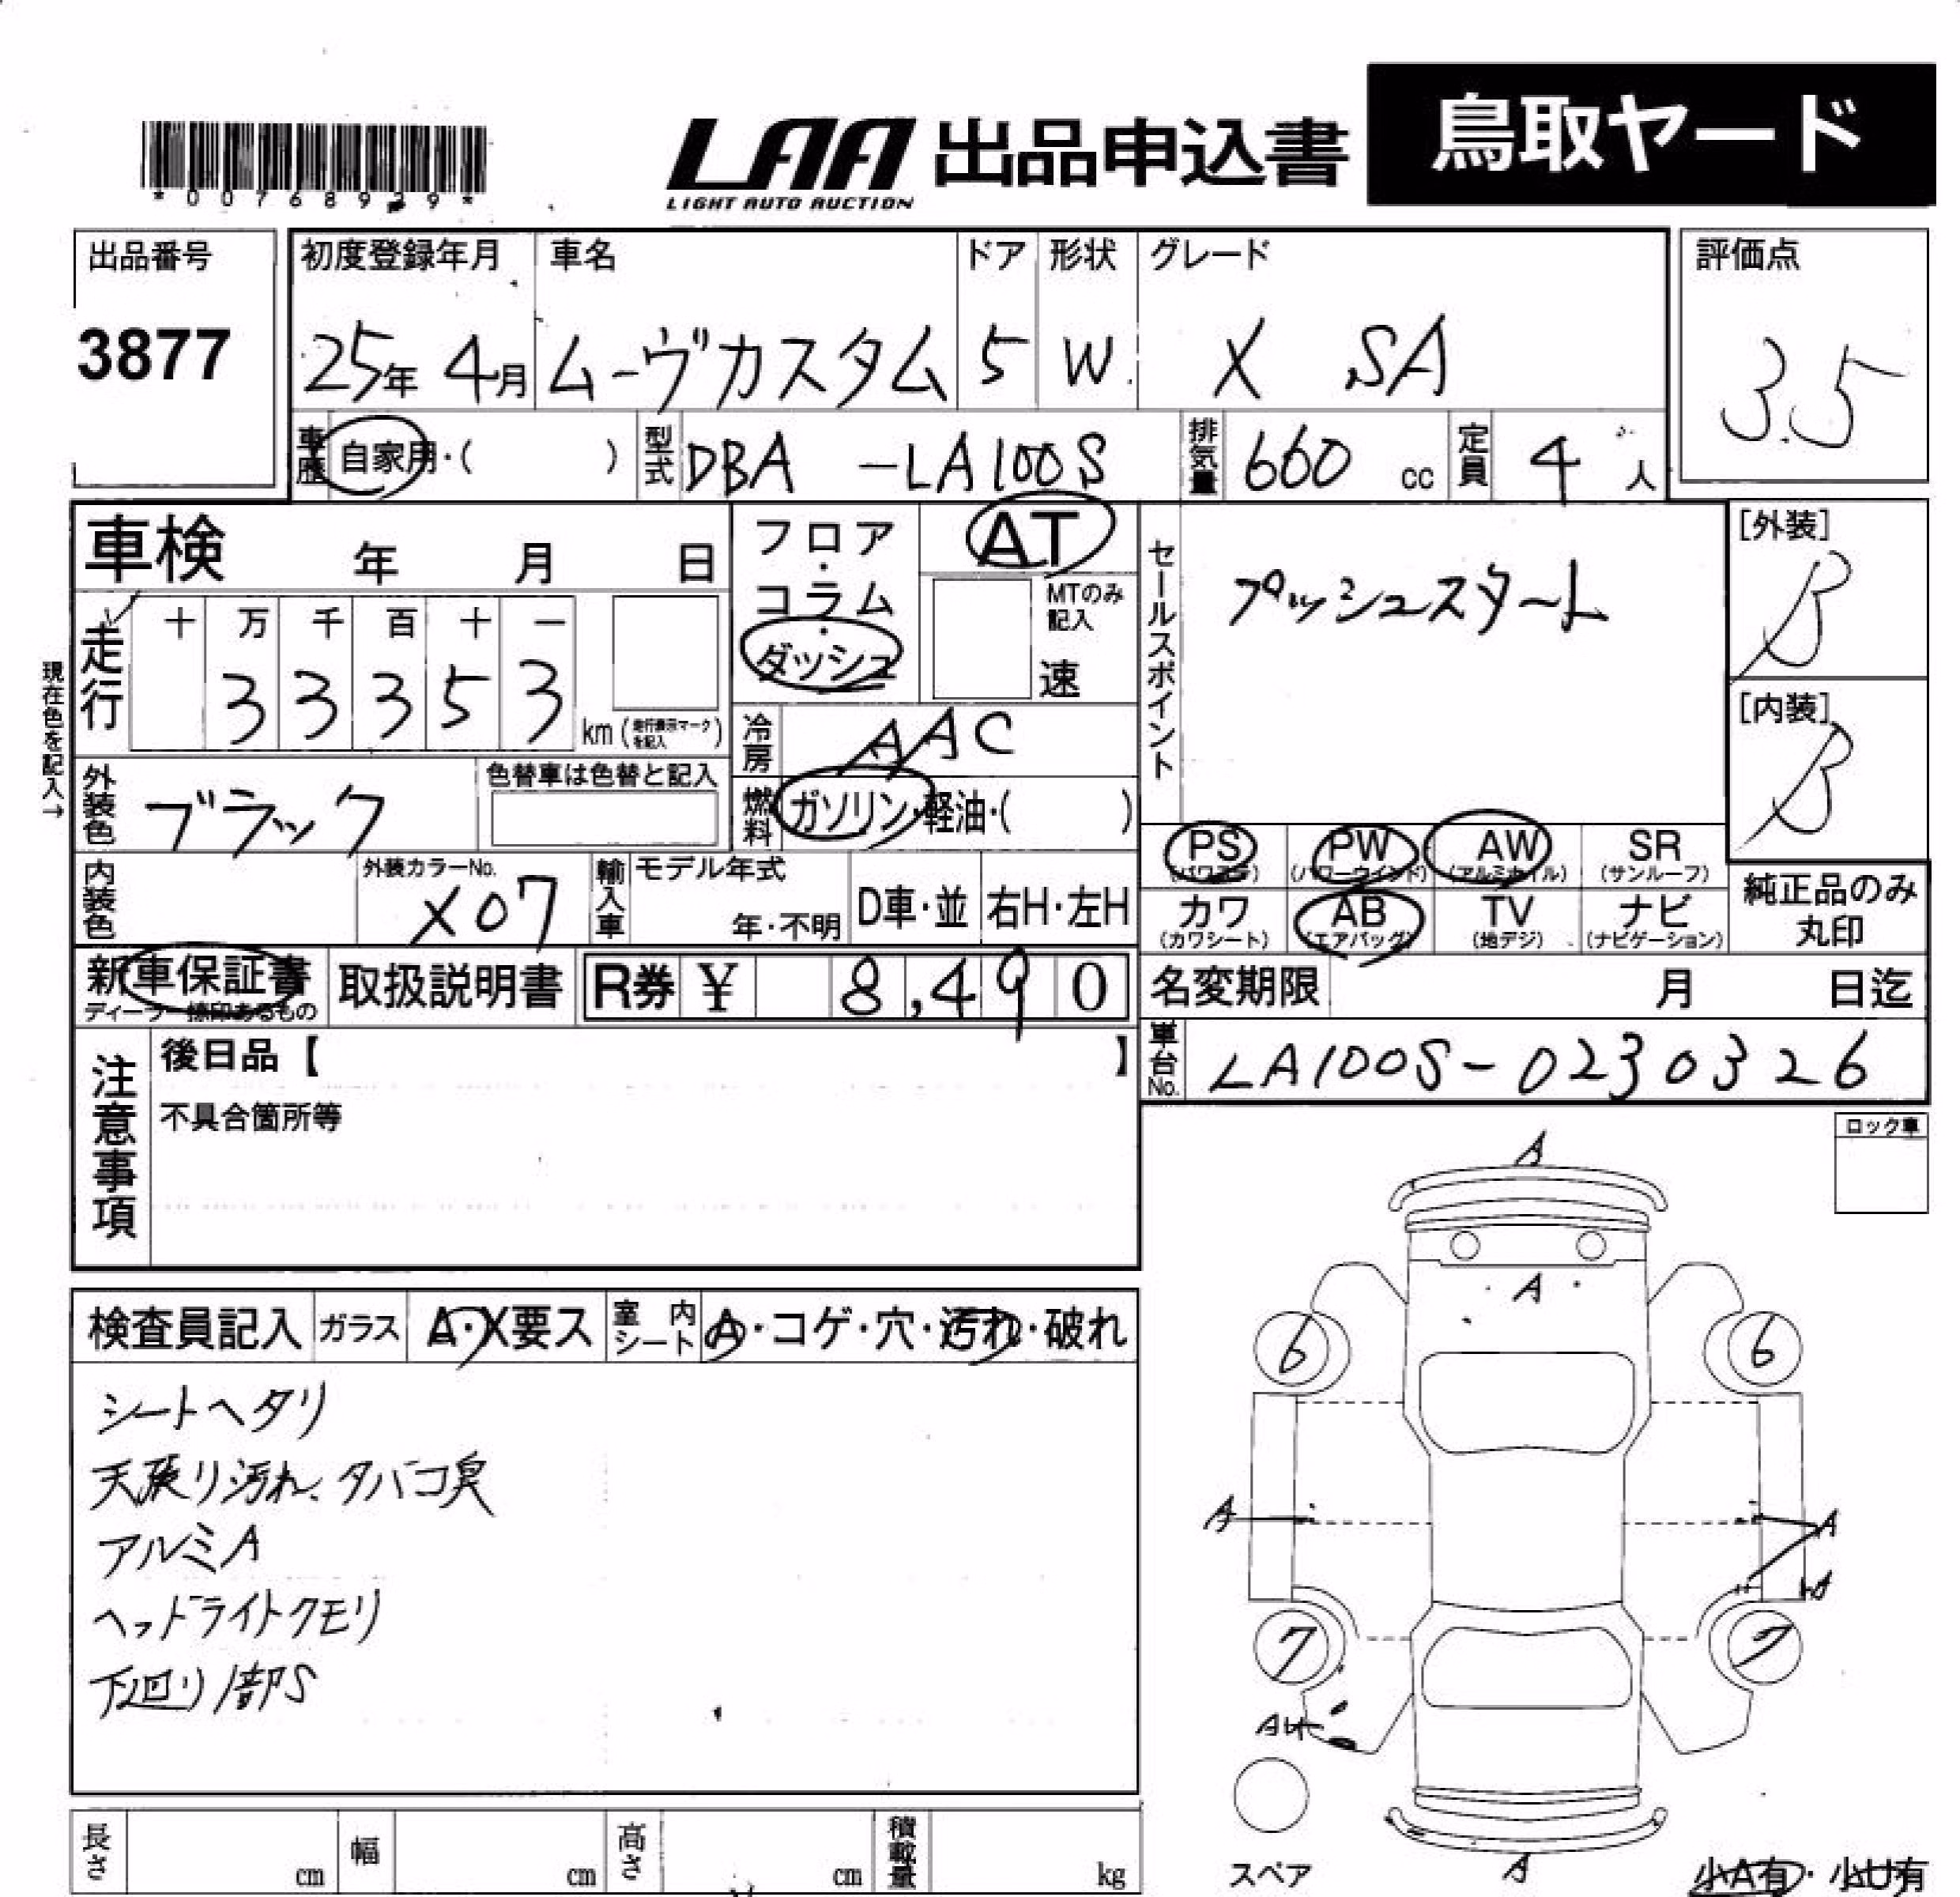 *00768939*
LAA 出品申込書 鳥取ヤード
LIGHT AUTO AUCTION
出品番号 初度登録年月 車名 ドア 形状 グレード 評価点
3877 25年 4月 ムーヴカスタム 5 W. X SA 3.5
車歴 自家用・( ) 型式 DBA -LA100S 排気量 660 cc 定員 4 人
車検 年 月 日 フロア・コラム・ダッシュ AT セールスポイント プッシュスタート [外装] B
MTのみ記入 速
現在色を記入→
走行 十 万 千 百 十 一
3 3 3 5 3 km(走行表示マークを記入) 冷房 AAC [内装] B
外装色 ブラック 色替車は色替と記入 燃料 ガソリン・軽油・( )
PS PW AW SR
(パワステ) (パワーウインド) (アルミホイル) (サンルーフ)
内装色 外装カラーNo. X07 輸入車 モデル年式 年・不明 D車・並 右H・左H
カワ AB TV ナビ 純正品のみ丸印
(カワシート) (エアバッグ) (地デジ) (ナビゲーション)
新車保証書 取扱説明書 R券 ¥ 8,490 名変期限 月 日迄
ディーラー捺印あるもの
注意事項 後日品【 】 車台No. LA100S-0230326
不具合箇所等
ロック車
A
A
検査員記入 ガラス A・X要ス 室内シート A・コゲ・穴・汚れ・破れ
6 6
シートヘタリ
天張り汚れ、タバコ臭
A A
アルミA
ヘッドライトクモリ
7 7
下廻り1部S
スペア
A
小A有・小U有
長さ cm 幅 cm 高さ cm 積載量 kg